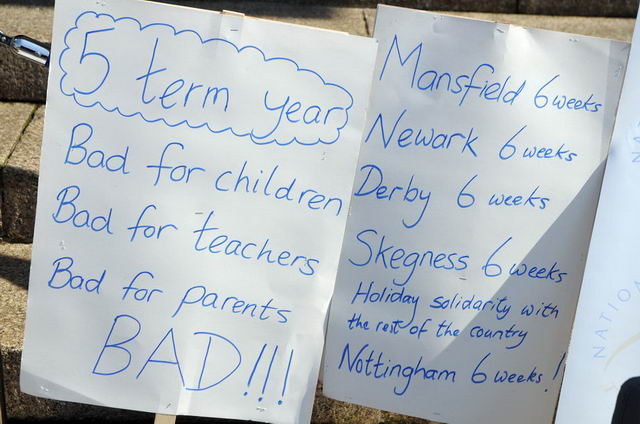 5 term year
Bad for children
Bad for teachers
Bad for parents
BAD!!!
Mansfield 6 weeks
Newark 6 weeks
Derby 6 weeks
Skegness 6 weeks
Holiday solidarity with
the rest of the country
Nottingham 6 weeks!